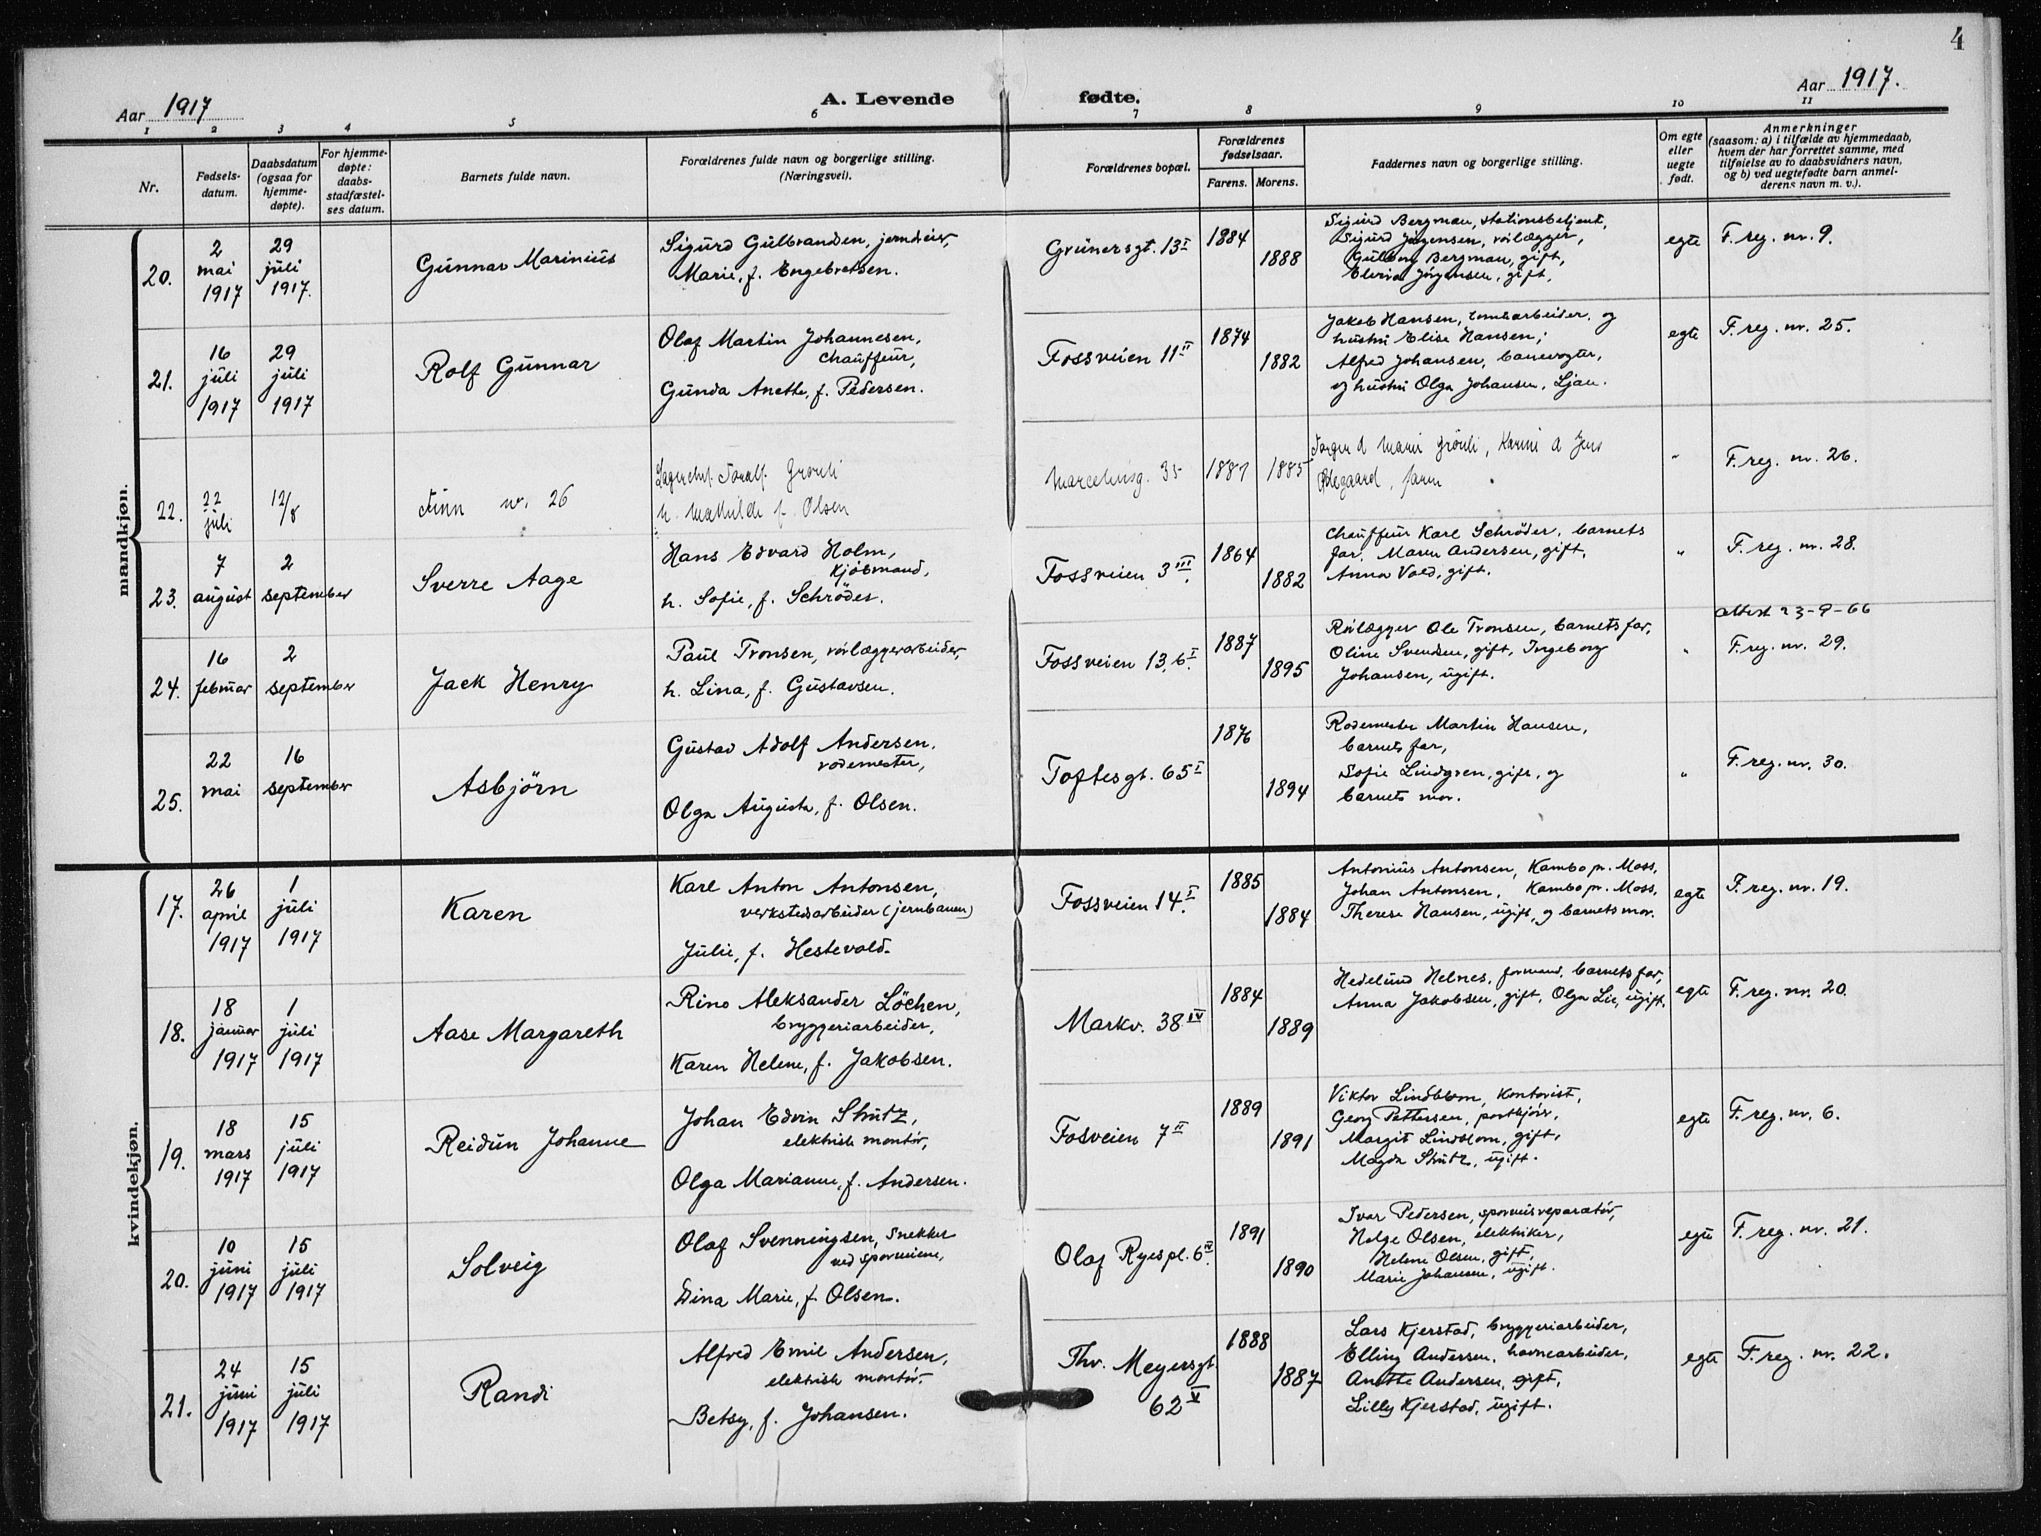 4
Aar 1917
A. Levende fødte.
Aar 1917.
1 2 3 4 5 6 7 8 9 10 11
Nr.
Fødsels-
datum.
Daabsdatum
(ogsaa for
hjemme-
døpte).
For hjemme-
døpte:
daabs-
stadfæstel-
ses datum.
Barnets fulde navn.
Forældrenes fulde navn og borgerlige stilling.
(Næringsvei).
Forældrenes bopæl.
Forældrenes
fødselsaar.
Farens. Morens.
Faddernes navn og borgerlige stilling.
Om egte
eller
uegte
født.
Anmerkninger
(saasom: a) i tilfælde av hjemmedaab,
hvem der har forrettet samme, med
tilføielse av to daabsvidners navn,
og b) ved uegtefødte barn anmel-
derens navn m. v.).
mandkjøn.
20.
2 mai 1917
29 juli 1917.
Gunnar Marinius
Sigurd Gulbrandsen, jerndreier,
Marie, f. Engebretsen.
Grünersgt. 13 I
1884
1888
Sigurd Bergman, stationsbetjent,
Sigurd Jørgensen, rørlægger,
Gulborg Bergman, gift,
Jørgensen, gift,
egte
F. reg. nr. 9.
21.
16 juli 1917
29 juli 1917
Rolf Gunnar
Olaf Martin Johannesen,
chauffeur,
Gunda Anette, f. Pedersen.
Fossveien 11 II
1874
1882
Jakob Hansen, tomtearbeider, og
hustru Elise Hansen;
Alfred Johansen, banevogter,
og hustru Olga Johansen, Ljan.
egte
F. reg. nr. 25.
22.
22 juli
12/8
Finn nr. 26
Toralf Grønli
h. Mathilde f. Olsen
Marcelusg. 35
1887
1885
Marie Grønli, Karine d Jens
Ødegaard, faren
"
F. reg. nr. 26.
23.
7 august
2 september
Sverre Aage
Hans Edvard Holm,
kjøbmand,
h. Sofie, f. Schrøder.
Fossveien 3 III.
1864
1882
Chauffeur Karl Schrøder, barnets
far, Maren Andersen, gift,
Anna Vold, gift.
"
F. reg. nr. 28.
24.
16 februar
2 september
Jack Henry
Paul Tronsen, rørlæggerarbeider,
h. Lina, f. Gustavsen.
Fossveien 13, 6 I.
1887
1895
Rørlægger Ole Tronsen, barnets far,
Oline Svendsen, gift, Ingeborg
Johansen, ugift.
"
Attest 23-9-66
F. reg. nr. 29.
25.
22 mai
16 september
Asbjörn
Gustav Adolf Andersen,
rodemester,
Olga Augusta, f. Olsen.
Toftesgt. 65 I
1876
1894
Rodemester Martin Hansen,
barnets far,
Sofie Lindgren, gift, og
barnets mor.
"
F. reg. nr. 30.
kvindekjøn.
17.
26 april 1917
1 juli 1917
Karen
Karl Anton Antonsen,
verkstedsarbeider (jernbanen)
Julie, f. Hestevold.
Fossveien 14 I.
1885
1884
Antonius Antonsen, Kambo pr. Moss,
Johan Antonsen, Kambo pr. Moss,
Therese Hansen, ugift, og barnets mor.
egte
F. reg. nr. 19.
18.
18 januar 1917
1 juli 1917
Aase Margareth
Rino Aleksander Löchen,
bryggeriarbeider,
Karen Helene, f. Jakobsen.
Markv. 38 IV
1884
1889
Hedelund Helnes, formand, barnets far,
Anna Jakobsen, gift, Olga Lie, ugift.
egte
F. reg. nr. 20.
19.
18 mars 1917
15 juli 1917
Reidun Johanne
Johan Edvin Shutz,
elektrisk montör,
Olga Marianne, f. Andersen.
Fosveien 7 II
1889
1891
Viktor Lindblom, kontorist,
Georg Pettersen, postkjörer,
Margit Lindblom, gift,
Magda Shutz, ugift.
egte
F. reg. nr. 6.
20.
10 juni 1917
15 juli 1917
Solveig
Olaf Svenningsen, snekker
ved sporveiene,
Dina Marie, f. Olsen.
Olaf Ryespl. 6 IV.
1891
1890
Ivar Pedersen, sporveisreparatör,
Helge Olsen, elektriker,
Helene Olsen, gift,
Marie Johansen, ugift.
egte
F. reg. nr. 21.
21.
24 juni 1917
15 juli 1917
Randi
Alfred Emil Andersen,
elektrisk montör,
Betsy, f. Johansen.
Thv. Meyersgt.
62 V
1888
1887
Lars Kjerstad, bryggeriarbeider,
Elling Andersen, havnearbeider,
Anette Andersen, gift,
Lilly Kjerstad, ugift.
egte
F. reg. nr. 22.